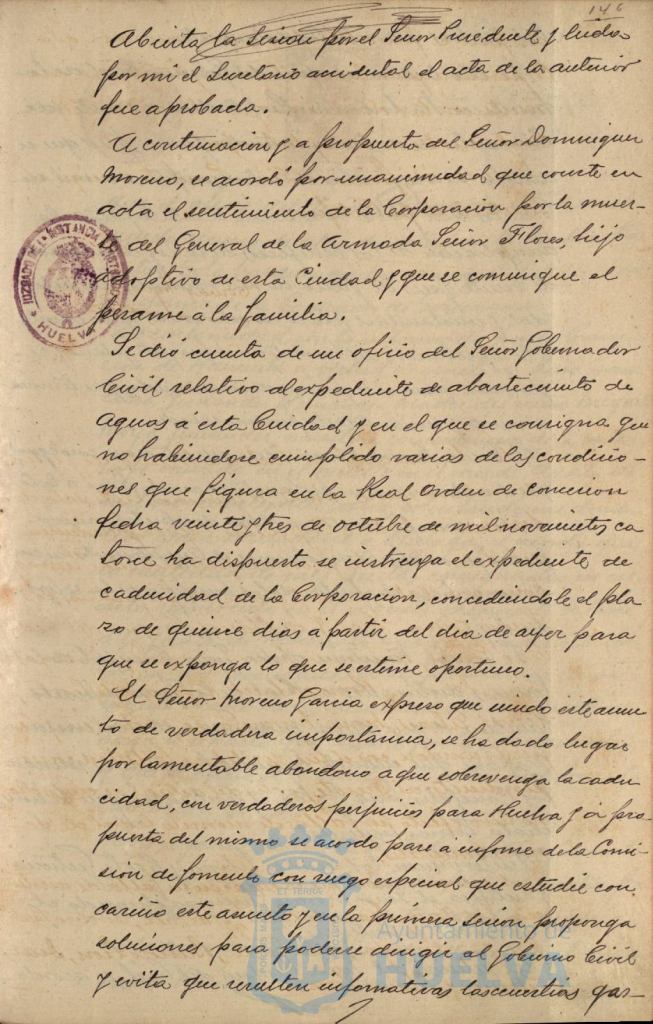 146
Abierta la Sesion por el Señor Presidente y leida
por mi el Secretario accidental el acta de la anterior
fue aprobada.
A continuacion y a propuesta del Señor Dominguez
Moreno, se acordó por unanimidad que conste en
acta el sentimiento de la Corporacion por la muer-
te del General de la Armada Señor Flores, hijo
adoptivo de esta Ciudad y que se comunique el
pesame á la familia.
Se dió cuenta de un oficio del Señor Gobernador
Civil relativo al expediente de abastecimiento de
aguas á esta Ciudad y en el que se consigna que
no habiendose cumplido varias de las condicio-
nes que figura en la Real Orden de concesion
fecha veinte y tres de octubre de mil novecientos ca
torce ha dispuesto se instruya el expediente de
caducidad de la Corporacion, concediendole el pla
zo de quince dias á partir del dia de ayer para
que se exponga lo que se estime oportuno.
El Señor Moreno Garcia expreso que siendo este asun-
to de verdadera importancia, se ha dado lugar
por lamentable abandono a que sobrevenga la cadu
cidad, con verdaderos perjuicios para Huelva y á pro-
puesta del mismo se acordo pase á informe de la Comi-
sion de fomento con ruego especial que estudie con
cariño este asunto y en la primera sesion proponga
soluciones para poderse dirigir al Gobierno Civil
y evita que resulten infornativas las cuestios gas-
JUZGADO DE 1ª INSTANCIA
HUELVA
Ayuntamiento de
HUELVA